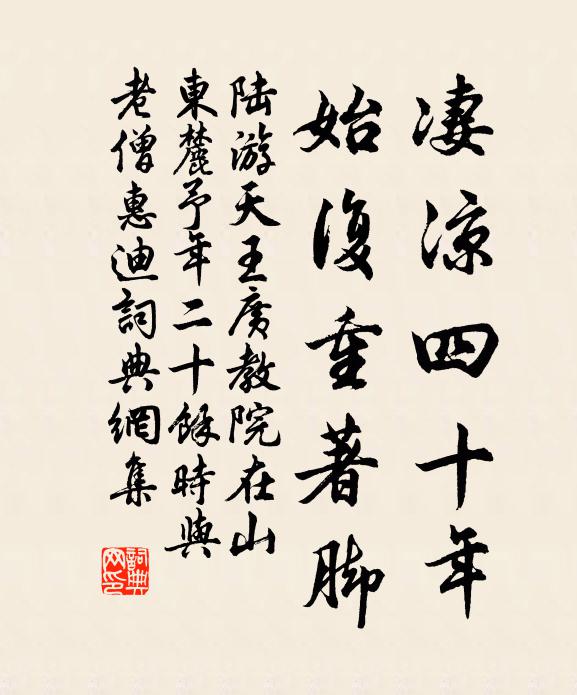 凄凉四十年
始復重著脚
陆游天王廣教院在山
東麓予年二十餘時與
老僧惠迪詞典網集
詞典网印